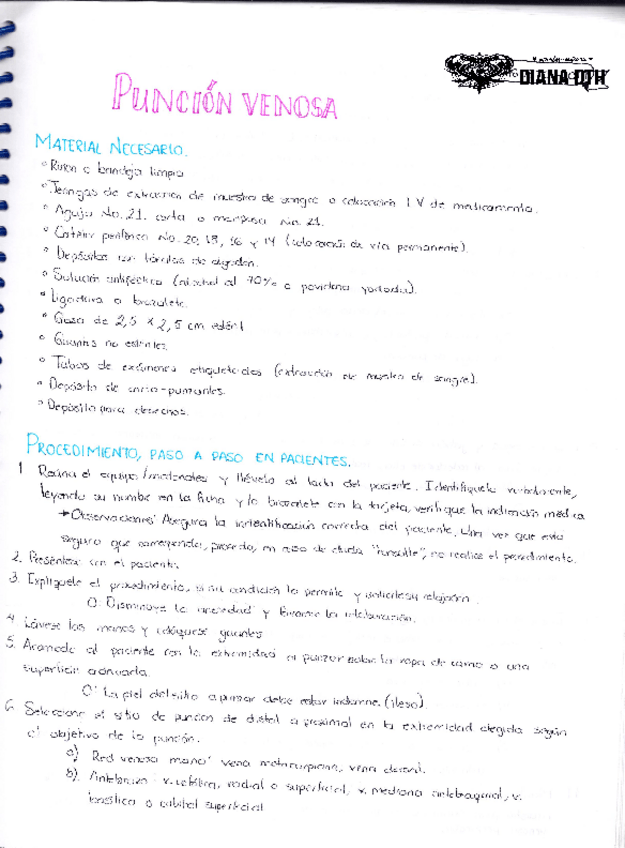 DIANA DTH
PUNCIÓN VENOSA
MATERIAL NECESARIO.
° Riñon o bandeja limpia
° Jeringas de extracción de muestra de sangre o colocación I V de medicamento.
° Aguja No. 21. corta o mariposa No. 21.
° Cateter periférico No. 20, 18, 16 y 14 (colocación de vía permanente).
° Depósitos con tórulas de algodón.
° Solución antiséptica (alcohol al 70% o povidona yodada).
° Ligadura o brazalete.
° Gasa de 2,5 x 2,5 cm estéril
° Guantes no estériles.
° Tubos de exámenes etiquetados (extracción de muestra de sangre).
° Depósito de corto-punzantes.
° Depósito para desechos.
PROCEDIMIENTO, PASO A PASO EN PACIENTES.
1 Reúna el equipo/materiales y llévelo al lado del paciente. Identifíquelo verbalmente,
leyendo su nombre en la ficha y/o brazalete con la tarjeta, verifique la indicación médica
→ Observaciones: Asegura la identificación correcta del paciente. Una vez que esté
seguro que corresponda, proceda, en caso de duda "consulte", no realice el procedimiento.
2. Preséntese con el paciente.
3. Explíquele el procedimiento, si su condición lo permite y solicítele relajación.
O: Disminuye la ansiedad y favorece la colaboración.
4. Lávese las manos y colóquese guantes
5. Acomode al paciente con la extremidad a puncionar sobre la ropa de cama o una
superficie adecuada.
O: La piel del sitio a puncionar debe estar indemne. (ileso).
6. Seleccione el sitio de punción de distal a proximal en la extremidad elegida según
el objetivo de la punción.
a) Red venosa mano: vena metacarpiana, vena dorsal.
b) Antebrazo: v. cefálica, radial o superficial, v. mediana antebraquial, v.
basílica o cubital superficial